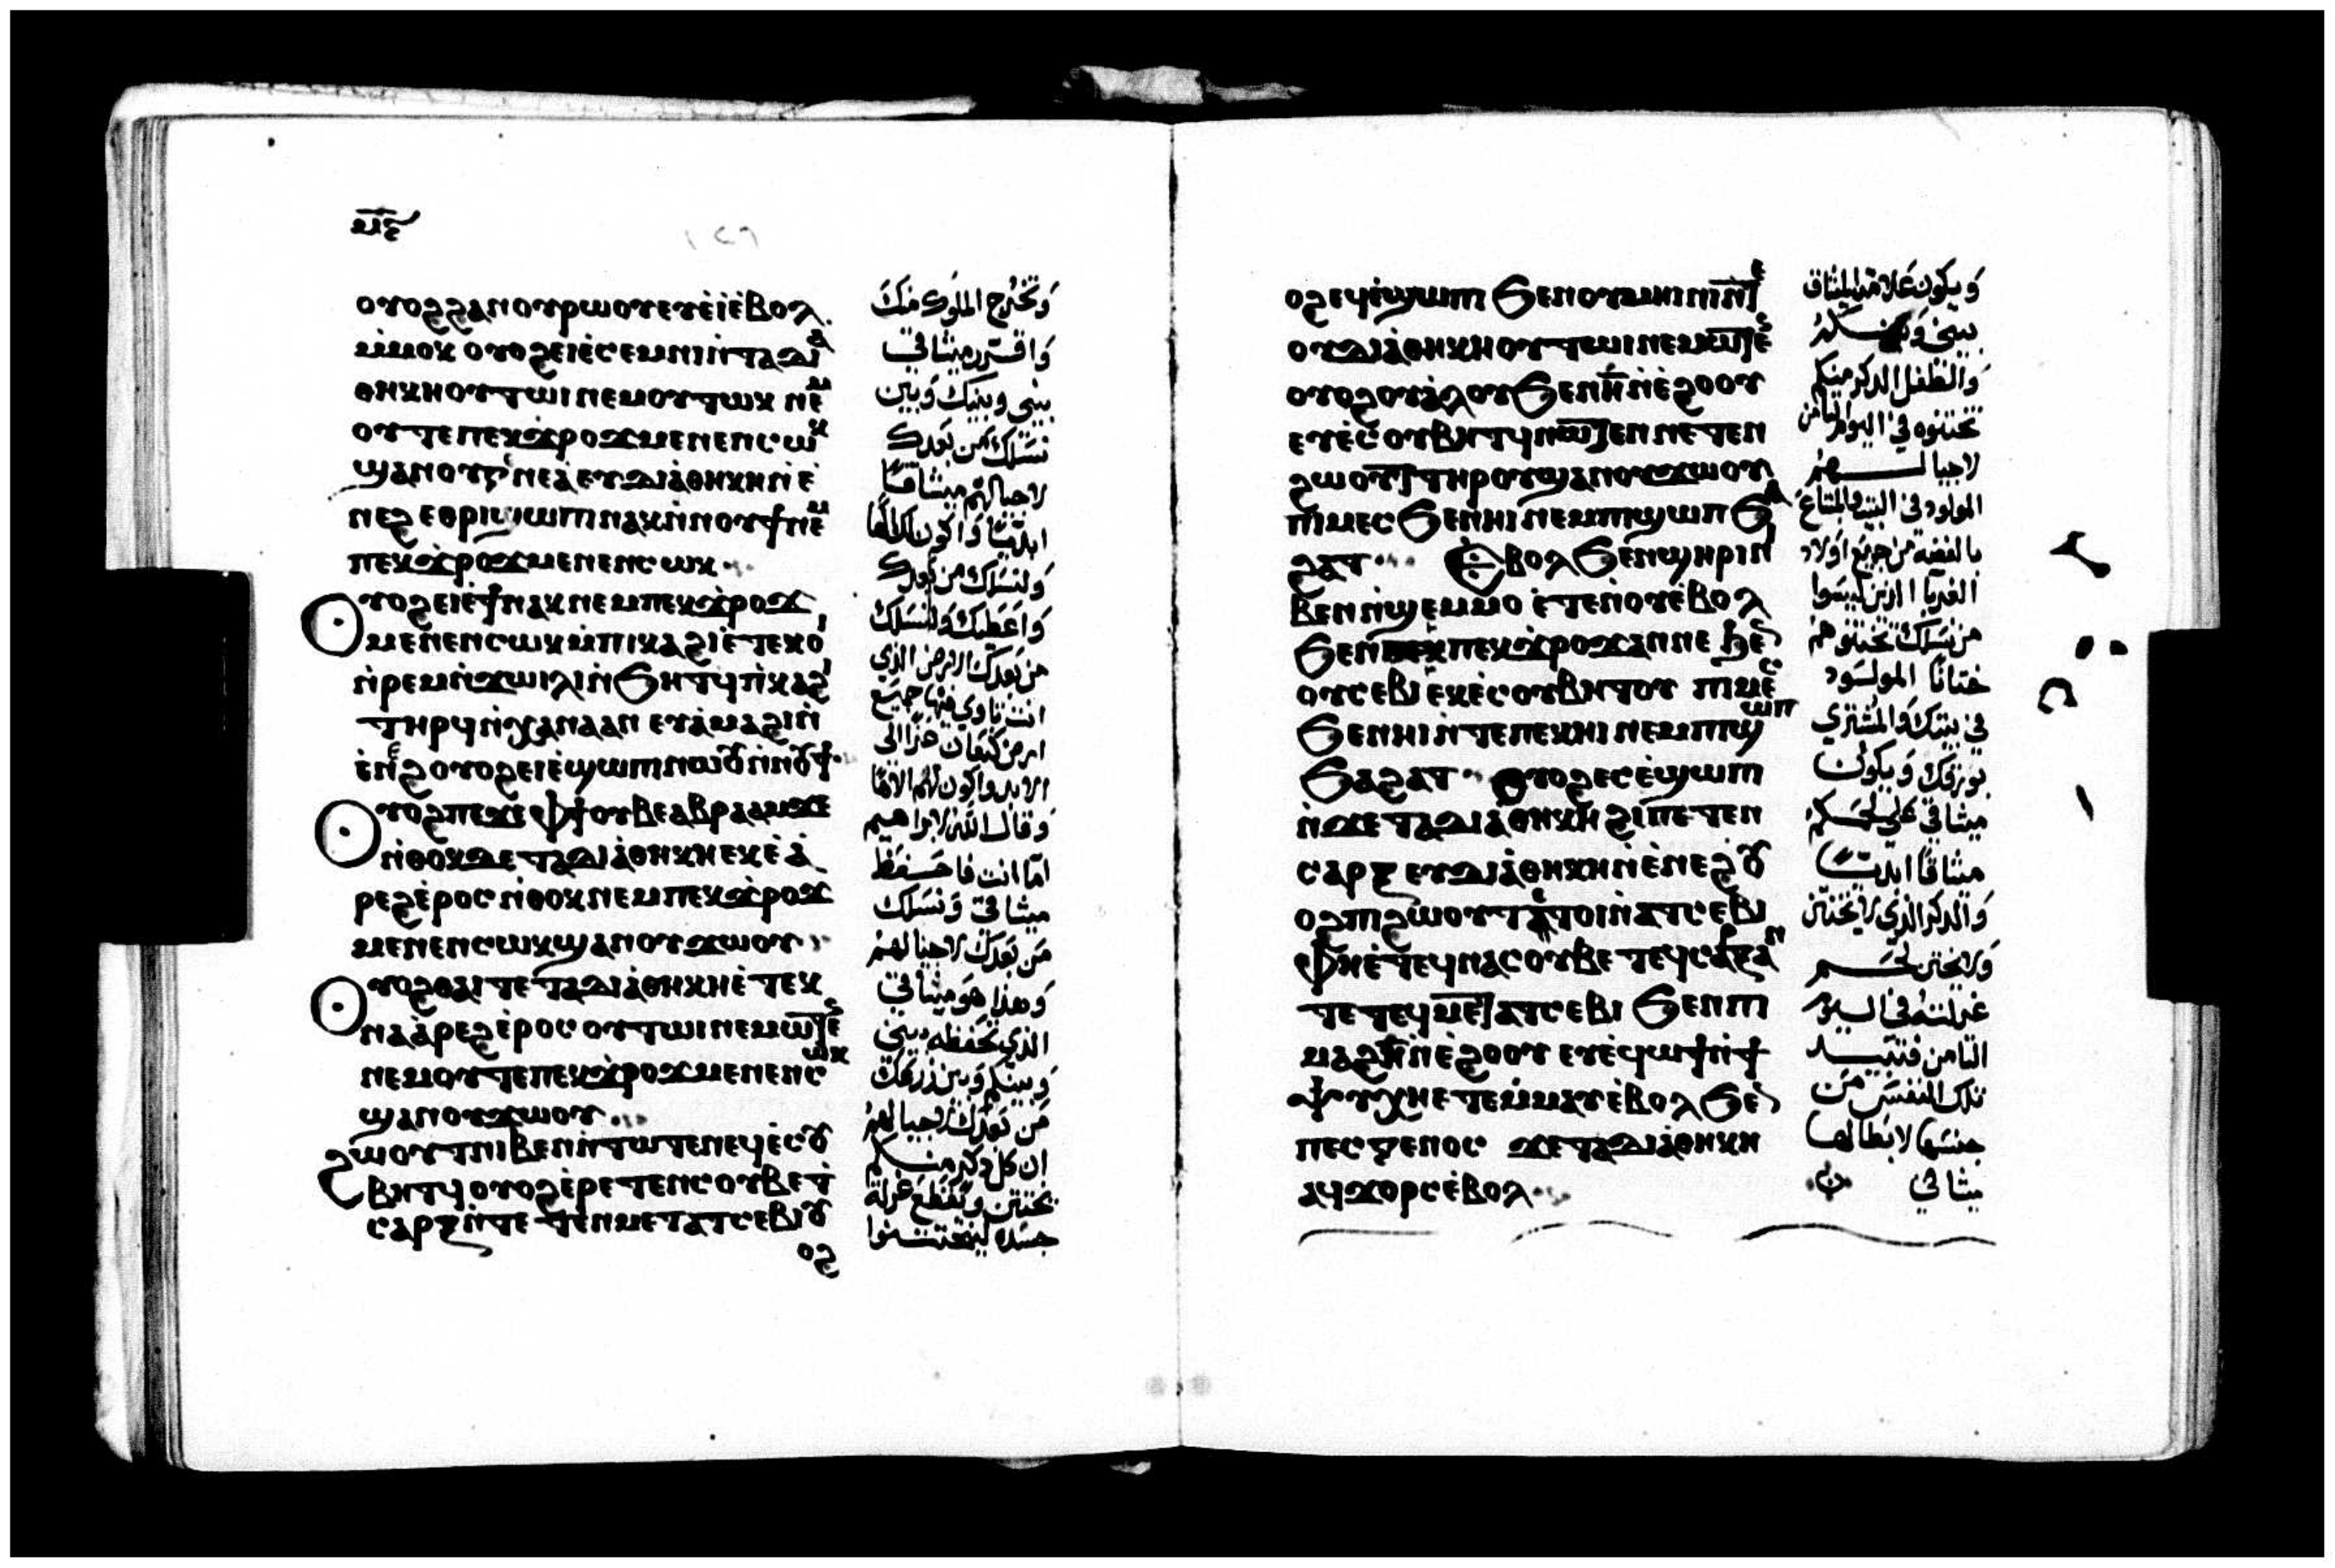 ⲙ̅ⲋ̅
ⲟⲩⲟϩ ϩⲁⲛⲟⲩⲣⲱⲟⲩ ⲉⲩⲉ̀ⲓ̀ ⲉ̀ⲃⲟⲗ
ⲙ̀ⲙⲟⲕ ⲟⲩⲟϩ ⲉⲓⲉ̀ⲥⲉⲙⲛⲓ ⲛ̀ⲧⲁⲇⲓⲁ
ⲑⲏⲕⲏ ⲟⲩⲧⲱⲓ ⲛⲉⲙ ⲟⲩⲧⲱⲕ ⲛⲉⲙ
ⲟⲩⲧⲉ ⲡⲉⲕϫⲣⲟϫ ⲙⲉⲛⲉⲛⲥⲱⲕ
ϣⲁⲛⲟⲩ ⲛⲉⲁ̀ ⲉⲩⲇⲓⲁ̀ⲑⲏⲕⲏ ⲛ̀ⲉ̀
ⲛⲉϩ ⲉⲑⲣⲓϣⲱⲡⲓ ⲛⲁⲕ ⲛ̀ⲛⲟⲩϯ ⲛⲉⲙ
ⲡⲉⲕϫⲣⲟϫ ⲙⲉⲛⲉⲛⲥⲱⲕ
ⲟⲩⲟϩ ⲉⲓⲉ̀ϯ ⲛⲁⲕ ⲛⲉⲙ ⲡⲉⲕϫⲣⲟϫ
ⲙⲉⲛⲉⲛⲥⲱⲕ ⲙ̀ⲡⲓⲕⲁϩⲓ ⲉ̀ⲧⲉⲕⲟⲓ
ⲛ̀ⲣⲉⲙⲛ̀ϫⲱⲓⲗⲓ ⲛ̀ϧⲏⲧϥ ⲡ̀ⲕⲁϩⲓ
ⲧⲏⲣϥ ⲛ̀ⲭⲁⲛⲁⲁⲛ ⲉⲩⲁ̀ⲙⲁϩⲓ ⲛ̀
ⲉ̀ⲛⲉϩ ⲟⲩⲟϩ ⲉⲓⲉ̀ϣⲱⲡⲓ ⲛⲱⲟⲩ ⲛ̀ⲛⲟⲩϯ
ⲟⲩⲟϩ ⲡⲉϫⲉ ⲫϯ ⲟⲩⲃⲉ ⲁⲃⲣⲁⲁⲙ ϫⲉ
ⲛ̀ⲑⲟⲕ ⲇⲉ ⲧⲁⲇⲓⲁ̀ⲑⲏⲕⲏ ⲉⲕⲉ̀ⲁ̀
ⲣⲉϩ ⲉ̀ⲣⲟⲥ ⲛ̀ⲑⲟⲕ ⲛⲉⲙ ⲡⲉⲕϫⲣⲟϫ
ⲙⲉⲛⲉⲛⲥⲱⲕ ϣⲁⲛⲟⲩϫⲱⲟⲩ
ⲟⲩⲟϩ ⲑⲁⲓ ⲧⲉ ⲧⲁⲇⲓⲁ̀ⲑⲏⲕⲏ ⲉ̀ⲧⲉⲕ
ⲛⲁⲁ̀ⲣⲉϩ ⲉ̀ⲣⲟⲥ ⲟⲩⲧⲱⲓ ⲛⲉⲙⲱⲧⲉⲛ
ⲛⲉⲙ ⲟⲩⲧⲉ ⲡⲉⲕϫⲣⲟϫ ⲙⲉⲛⲉⲛⲥⲱⲕ
ϣⲁⲛⲟⲩϫⲱⲟⲩ
ϩⲱⲟⲩⲧ ⲛⲓⲃⲉⲛ ⲛ̀ⲧⲱⲧⲉⲛ ⲉⲩⲉ̀ⲥⲟⲩ
ⲃⲏⲧϥ ⲟⲩⲟϩ ⲉ̀ⲣⲉⲧⲉⲛⲥⲟⲩⲃⲉ ϯ
ⲥⲁⲣⲝ ⲛ̀ⲧⲉ ⲧⲉⲛⲙⲉⲧⲁⲧⲥⲉⲃⲓ ⲟⲩ
ⲟϩ
وتخرج الملوك منك
واقرر ميثاقي
بيني وبينك وبين
نسلك من بعدك
لاجيالهم ميثاقا
ابديا واكون لك الها
ولنسلك من بعدك
واعطيك ولنسلك
من بعدك الارض الذي
انت تاوي فيها جميع
ارض كنعان عزا الى
الابد واكون لهم الاها
وقال الله لابراهيم
اما انت فاحفظ
ميثاقي ونسلك
من بعدك لاجيالهم
وهذا هو ميثاقي
الذي تحفظه بيني
وبينكم وبين زرعك
من بعدك لاجيالهم
ان كل ذكر منكم
يختتن وتقطع غرلة
ⲟϩ ⲉϥⲉ̀ϣⲱⲡⲓ ϧⲉⲛ ⲟⲩⲙⲏⲓⲛⲓ ⲛ̀ⲧⲉ
ⲟⲩⲇⲓⲁ̀ⲑⲏⲕⲏ ⲟⲩⲧⲱⲓ ⲛⲉⲙⲱⲧⲉⲛ
ⲟⲩⲟϩ ⲟⲩⲁ̀ⲗⲟⲩ ϧⲉⲛ ⲏ̅ ⲛ̀ⲉ̀ϩⲟⲟⲩ
ⲉⲩⲉ̀ⲥⲟⲩⲃⲏⲧϥ ⲛⲱⲧⲉⲛ ⲛⲉⲧⲉⲛ
ϩⲱⲟⲩⲧ ⲧⲏⲣⲟⲩ ϣⲁⲛⲟⲩϫⲱⲟⲩ
ⲡⲓⲙⲉⲥ ϧⲉⲛ ⲏⲓ ⲛⲉⲙ ⲡⲓϣⲱⲡ ϧⲁ
ϩⲁⲧ ⲉ̀ⲃⲟⲗ ϧⲉⲛ ϣⲏⲣⲓ ⲛⲓ
ⲃⲉⲛ ⲛ̀ϣⲉⲙⲙⲟ ⲉ̀ⲧⲉ ⲛ̀ⲟⲩⲉ̀ⲃⲟⲗ
ϧⲉⲛ ⲡⲉⲕϫⲣⲟϫ ⲁⲛ ⲛⲉ ϧⲉⲛ
ⲟⲩⲥⲉⲃⲓ ⲉⲕⲉ̀ⲥⲟⲩⲃⲏⲧⲟⲩ ⲡⲓⲙⲉⲥ
ϧⲉⲛ ⲏⲓ ⲛ̀ⲧⲉ ⲡⲉⲕⲏⲓ ⲛⲉⲙ ⲡⲓϣⲱⲡ
ϧⲁϩⲁⲧ ⲟⲩⲟϩ ⲉⲥⲉ̀ϣⲱⲡⲓ
ⲛ̀ϫⲉ ⲧⲁⲇⲓⲁ̀ⲑⲏⲕⲏ ϩⲓ ⲡⲉⲧⲉⲛ
ⲥⲁⲣⲝ ⲉⲩⲇⲓⲁ̀ⲑⲏⲕⲏ ⲛ̀ⲉ̀ⲛⲉϩ ⲟⲩ
ⲟϩ ⲡⲓϩⲱⲟⲩⲧ ⲉ̀ⲧⲟⲓ ⲛ̀ⲁⲧⲥⲉⲃⲓ
ⲫⲏ ⲉ̀ⲧⲉϥⲛⲁⲥⲟⲩⲃⲉ ⲧⲉϥⲥⲁⲣⲝ ⲁⲛ
ⲧⲉ ⲧⲉϥⲙⲉⲧⲁⲧⲥⲉⲃⲓ ϧⲉⲛ ⲡⲓ
ⲙⲁϩ ⲏ̅ ⲛ̀ⲉ̀ϩⲟⲟⲩ ⲉⲩⲉ̀ϥⲱϯ ⲛ̀ϯ
ⲯⲩⲭⲏ ⲉⲧⲉⲙ̀ⲙⲁⲩ ⲉ̀ⲃⲟⲗ ϧⲉⲛ
ⲡⲉⲥⲅⲉⲛⲟⲥ ϫⲉ ⲧⲁⲇⲓⲁ̀ⲑⲏⲕⲏ
ⲁϥϫⲟⲣⲥ ⲉ̀ⲃⲟⲗ
ويكون علامة الميثاق
والطفل الذكر منكم
تختنوه في اليوم الثامن
لاجيالهم
المولود في البيت والمبتاع
بالفضة من جميع اولاد
الغربا الذين ليسوا
من نسلك تختنوهم
ختانا المولود
في بيتك والمشتري
بورقك ويكون
ميثاقي على لحمكم
ميثاقا ابديا
والذكر الذي لا يختتن
ولا يختن لحم
غرلته في اليوم
الثامن فتبيد
تلك النفس من
جنسها لابطالها
ميثاقي